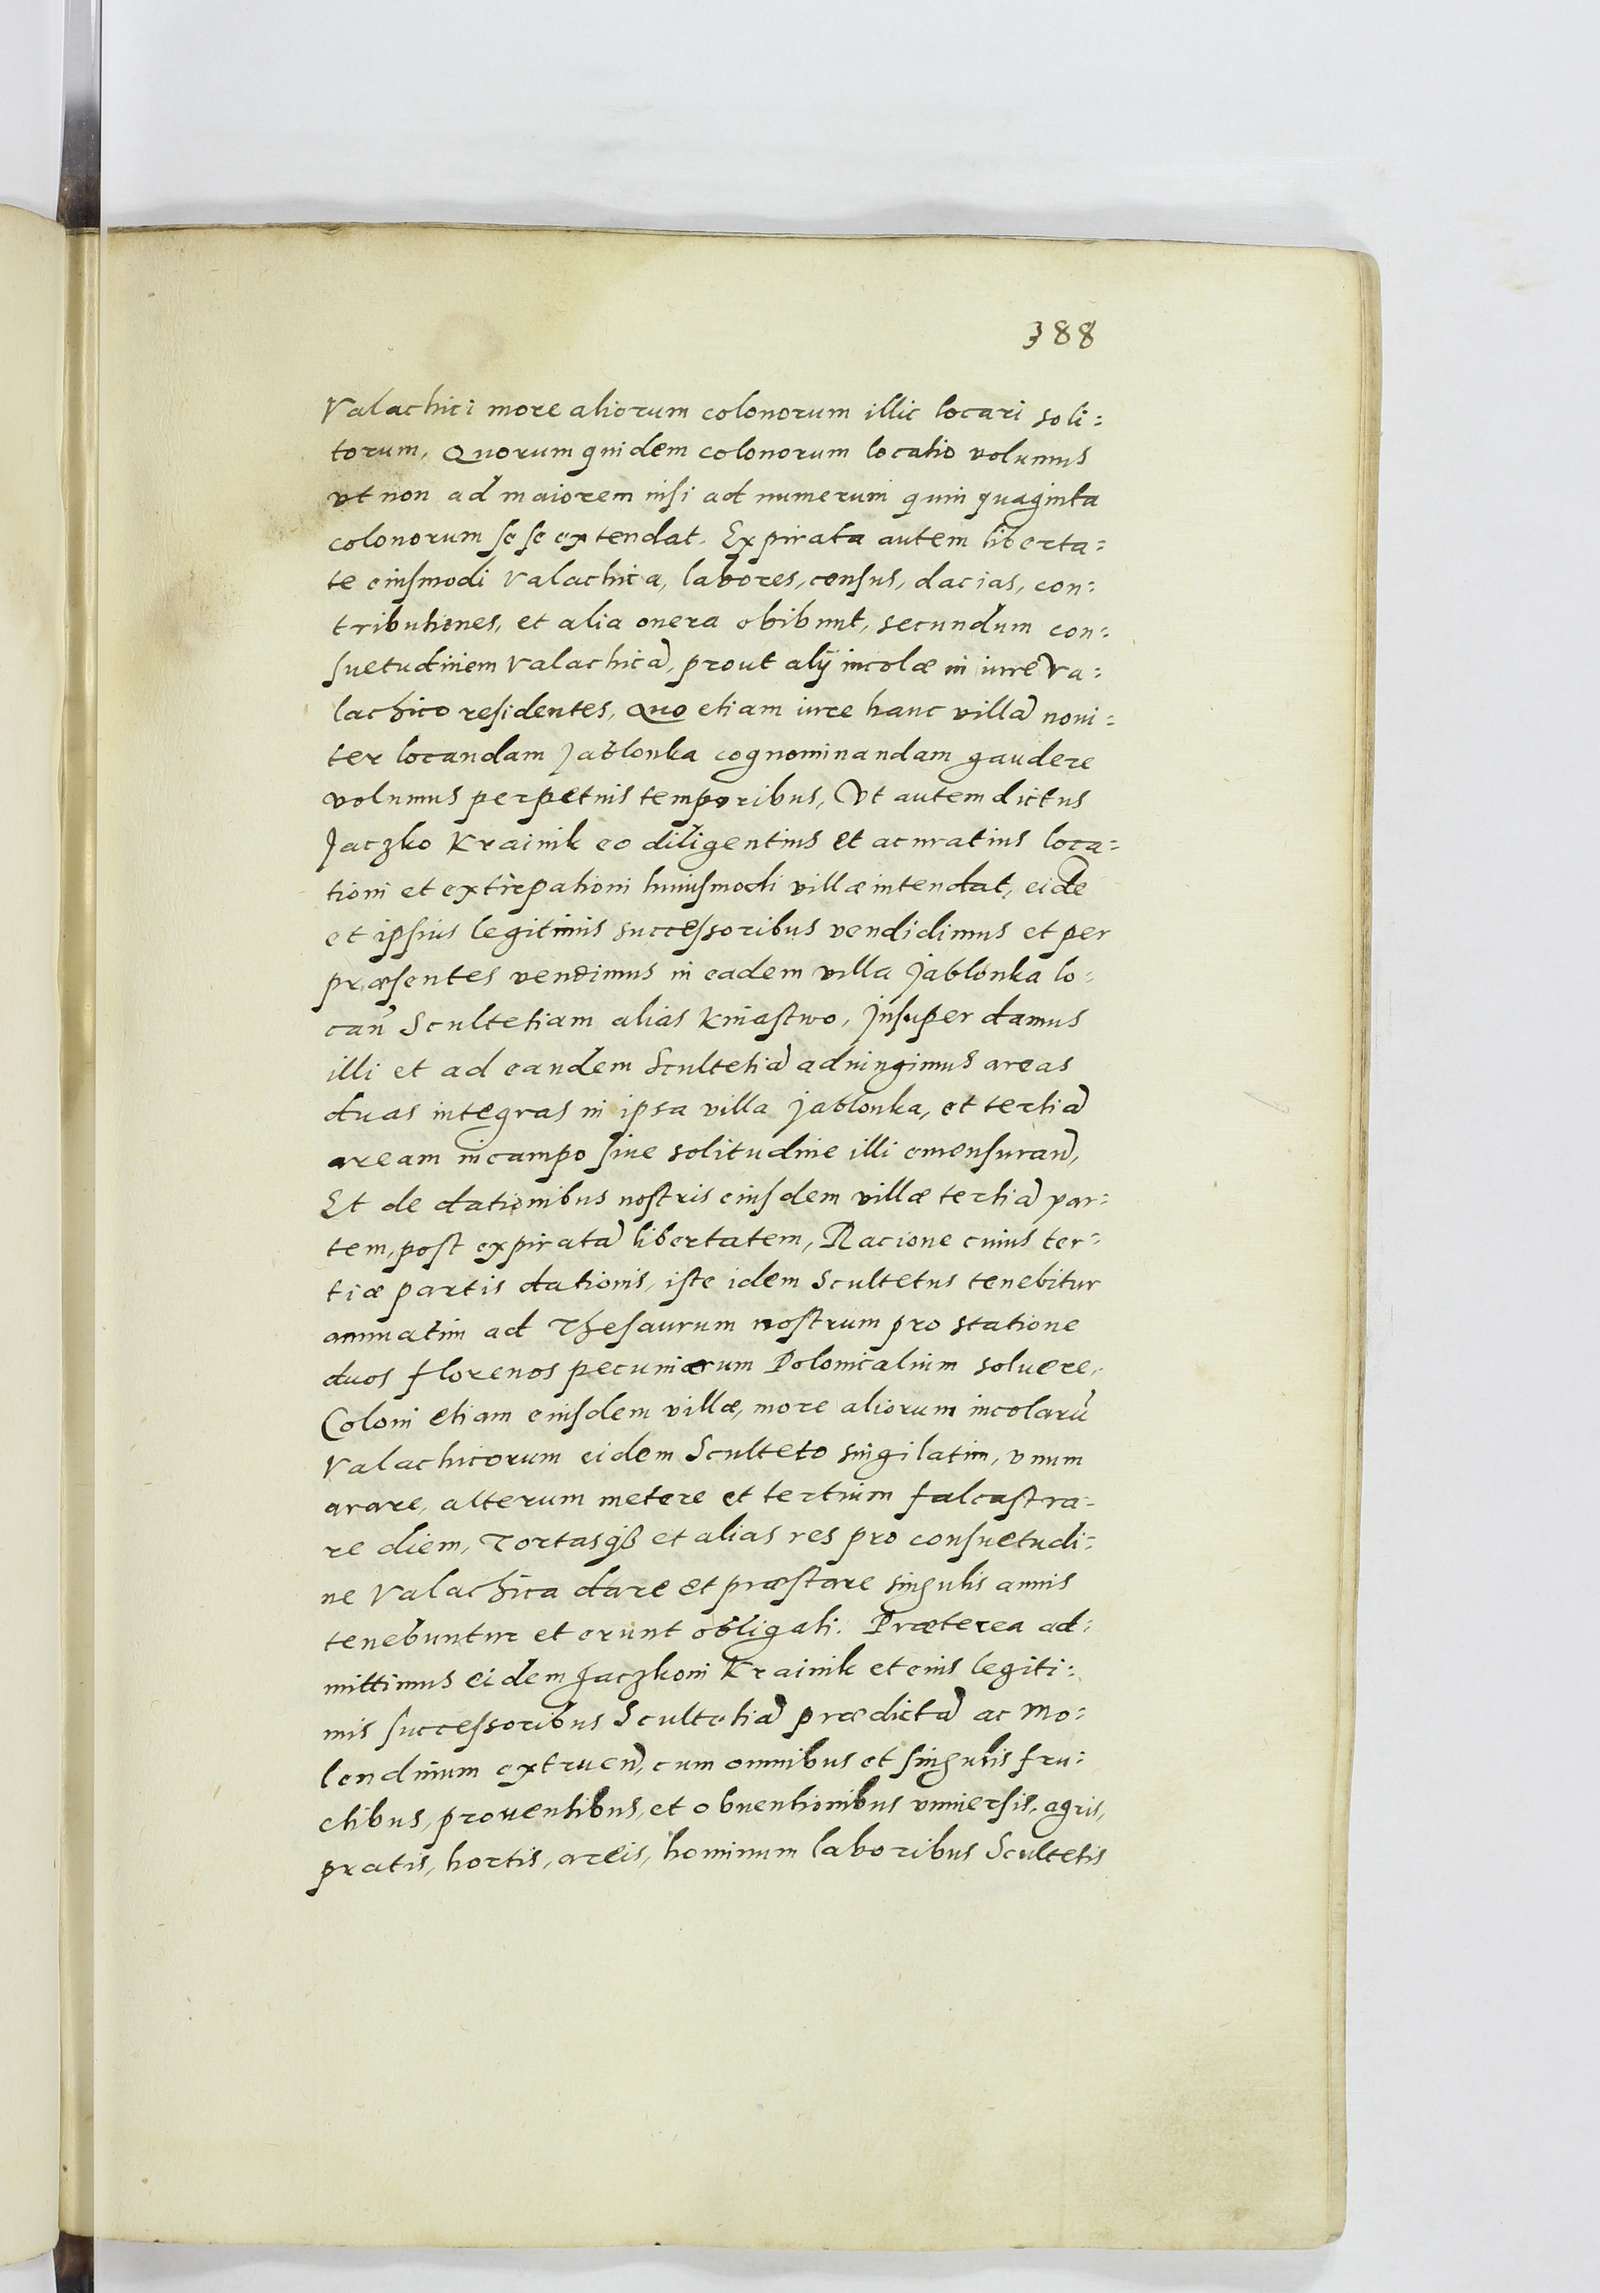 388
Valachici more aliorum colonorum illic locari soli:
torum, Quorum quidem colonorum locatio volumus
vt non ad maiorem nisi ad numerum quinquaginta
colonorum se se extendat. Expirata autem liberta:
te eiusmodi Valachica, labores, census, dacias, con:
tributiones, et alia onera obibunt, secundum con:
suetudinem Valachicã, prout alij incolæ in iure Va:
lachico residentes, Quo etiam iure hanc villã noui:
ter locandam Jablonka cognominandam gaudere
volumus perpetuis temporibus, Vt autem dictus
Jaczko Krainik eo diligentius et acuratius loca:
tioni et extirpationi huiusmodi villæ intendat, eidẽ
et ipsius legitimis successoribus vendidimus et per
præsentes vendimus in eadem villa Jablonka lo:
can̄ Scultetiam alias Kniastwo, Insuper damus
illi et ad eandem Scultetiã adiungimus areas
duas integras in ipsa villa Jablonka, et tertiã
aream in campo siue solitudine illi emensuran̄,
Et de dationibus nostris eiusdem villæ tertiã par:
tem, post expiratã libertatem, Racione cuius ter:
tiæ partis dationis, iste idem Scultetus tenebitur
annuatim ad Thesaurum nostrum pro statione
duos florenos pecuniarum Polonicalium soluere,
Coloni etiam eiusdem villæ, more aliorum incolarũ
Valachicorum eidem Sculteto singilatim, vnum
arare, alterum metere et tertium falcastra:
re diem, Tortasqß et alias res pro consuetudi:
ne Valachica dare et præstare singulis annis
tenebuntur et erunt obligati. Præterea ad:
mittimus eidem Jaczkoni Krainik et eius legiti:
mis successoribus Scultetiã prædictã ac Mo:
lendinum extruen̄, cum omnibus et singulis fru:
ctibus, prouentibus, et obuentionibus vniuersis, agris,
pratis, hortis, areis, hominum laboribus Scultetis